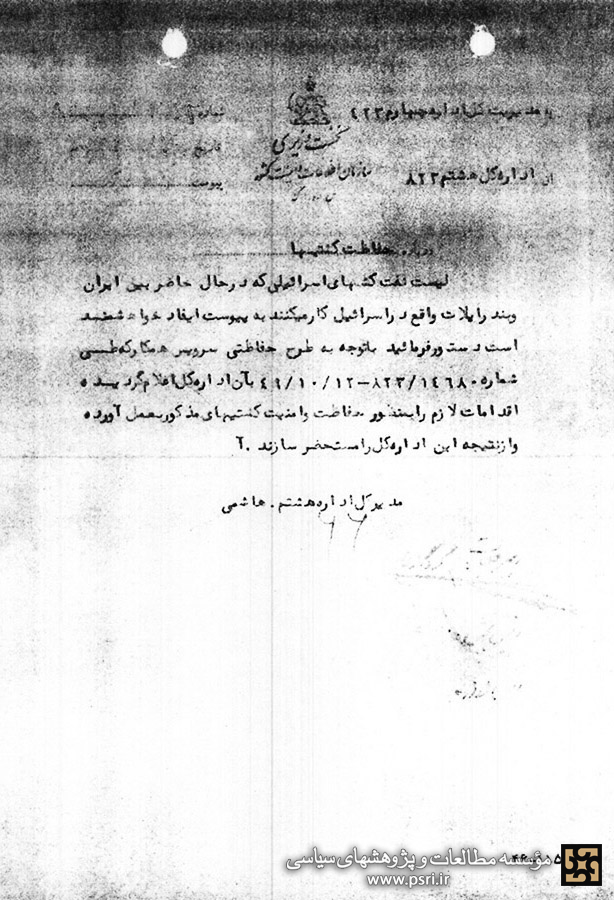 به مدیریت کل اداره چهارم ۴۲۳
از اداره کل هشتم ۸۲۳
نخست وزیری
سازمان اطلاعات و امنیت کشور
شماره
تاریخ
پیوست
درباره حفاظت کشتیها
لیست نفت کشهای اسرائیلی که در حال حاضر بین ایران
وبند رایلات واقع در اسرائیل کار میکنند به پیوست ایفاد خواهشمند
است دستور فرمائید باتوجه به طرح حفاظتی سرویس همکار که طی
شماره ۸۲۳/۱۴۶۸۰-۴۹/۱۰/۱۲ بآن اداره کل اعلام گردیده
اقدامات لازم را بمنظور حفاظت وامنیت کشتیهای مذکور بعمل آورده
واز نتیجه این اداره کل را مستحضر سازند .آ
مدیر کل اداره هشتم . هاشمی
مؤسسه مطالعات و پژوهشهای سیاسی
www.psri.ir